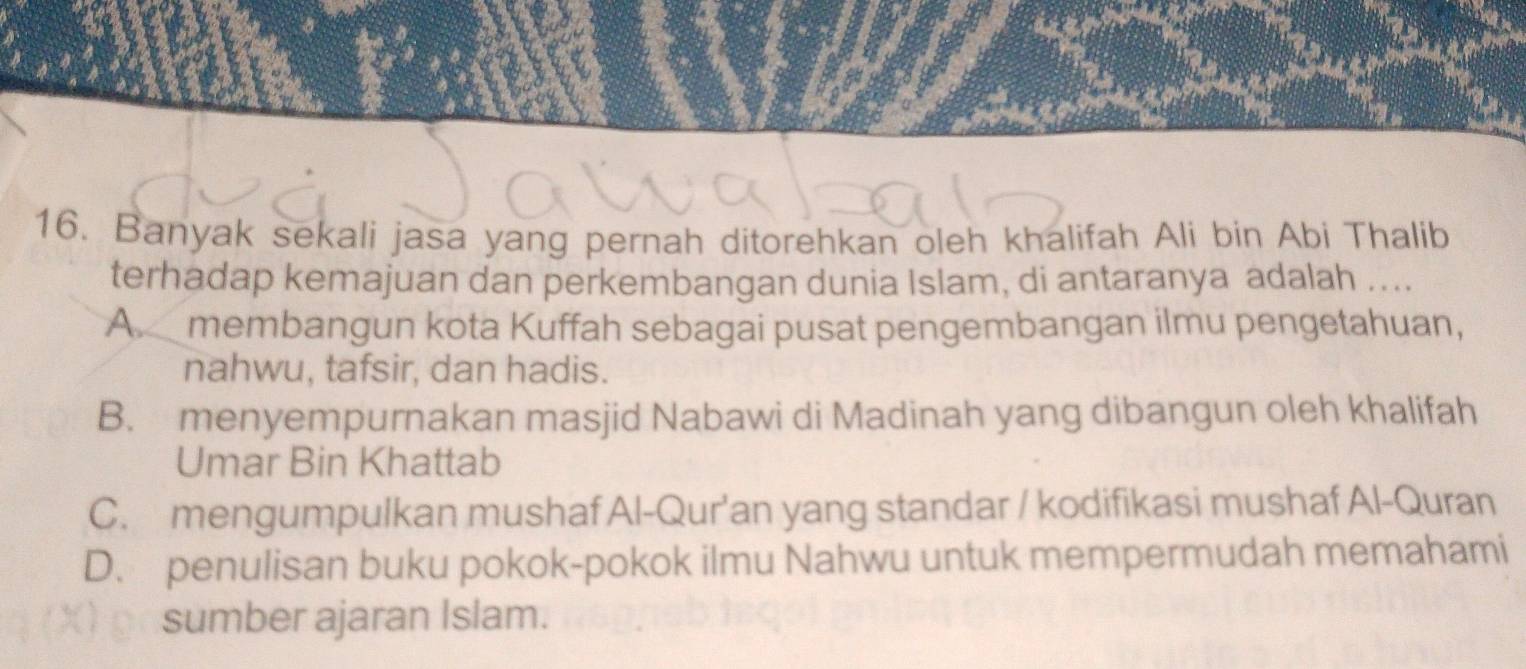 dua Jawaban
16. Banyak sekali jasa yang pernah ditorehkan oleh khalifah Ali bin Abi Thalib
terhadap kemajuan dan perkembangan dunia Islam, di antaranya adalah ....
A. membangun kota Kuffah sebagai pusat pengembangan ilmu pengetahuan,
nahwu, tafsir, dan hadis.
B. menyempurnakan masjid Nabawi di Madinah yang dibangun oleh khalifah
Umar Bin Khattab
C. mengumpulkan mushaf Al-Qur'an yang standar / kodifikasi mushaf Al-Quran
D. penulisan buku pokok-pokok ilmu Nahwu untuk mempermudah memahami
sumber ajaran Islam.